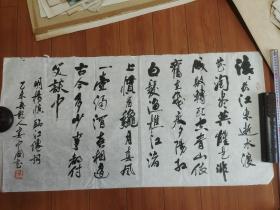 滚〻长江东逝水浪
花淘尽英雄是非
成败转头空青山依
旧在几度夕阳红
白发渔樵江渚
上惯看秋月春风
一壶浊酒喜相逢
古今多少事都付
笑谈中
明杨慎临江仙词
乙未